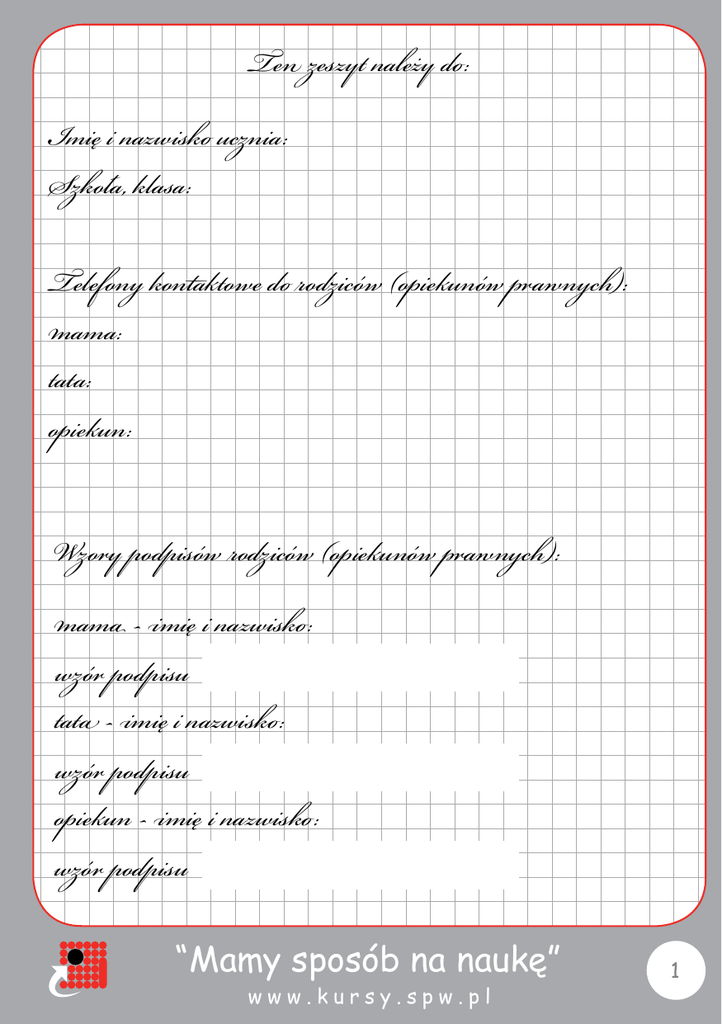 Ten zeszyt należy do:
Imię i nazwisko ucznia:
Szkoła, klasa:
Telefony kontaktowe do rodziców (opiekunów prawnych):
mama:
tata:
opiekun:
Wzory podpisów rodziców (opiekunów prawnych):
mama - imię i nazwisko:
wzór podpisu
tata - imię i nazwisko:
wzór podpisu
opiekun - imię i nazwisko:
wzór podpisu
“Mamy sposób na naukę”
www.kursy.spw.pl
1